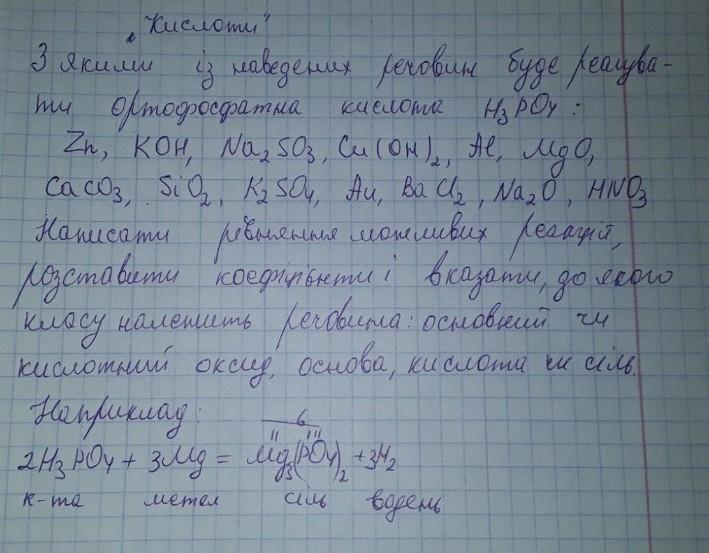 „Кислоти"
З якими із наведених речовин буде реагува-
ти ортофосфатна кислота H3PO4:
Zn, KOH, Na2SO3, Cu(OH)2, Al, MgO,
CaCO3, SiO2, K2SO4, Au, BaCl2, Na2O, HNO3
Написати рівняння можливих реакцій,
розставити коефіцієнти і вказати, до якого
класу належить речовина: основний чи
кислотний оксид, основа, кислота чи сіль.
Наприклад:
6
II III
2H3PO4 + 3Mg = Mg3(PO4)2 + 3H2
к-та метал сіль водень